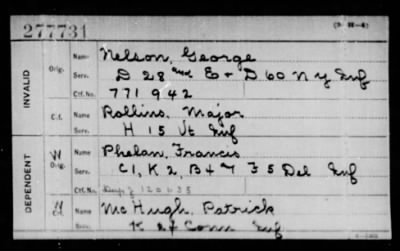 277731
INVALID
Orig.
Name Nelson, George
Serv. D 28 and E + D 60 N Y Inf
Ctf. No. 771 942
C.f.
Name Rollins, Major
Serv. H 15 Vt Inf
DEPENDENT
W
Orig.
Name Phelan, Francis
Serv. C 1, K 2, B + 7 F 5 Del Inf
Ctf. No.
W
Ctf.
Name McHugh, Patrick
Serv. K 27 Conn Inf